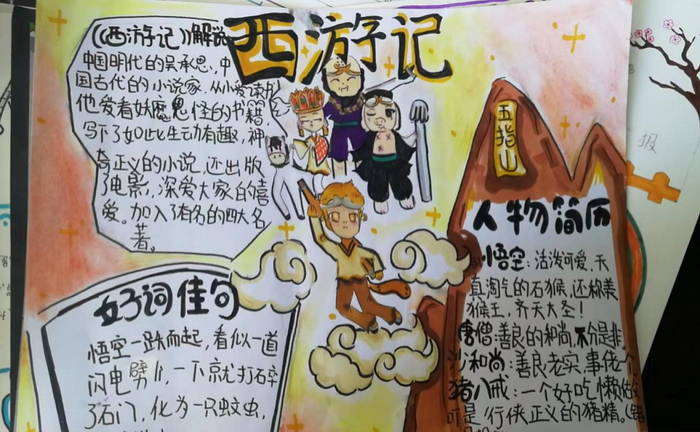 西游记
《西游记》解说
中国明代的吴承恩,中
国古代的小说家,从小爱读书
他爱看妖魔鬼怪的书籍
写下了如此生动有趣,神
奇正义的小说,还出版
了电影,深爱大家的喜
爱。加入了有名的四大名
著。
好词佳句
悟空一跃而起,看似一道
闪电劈儿,一下就打石卒
了石门,化为一只蚊虫,
五指山
人物简历
悟空:活泼可爱,天
真淘气的石猴,还称美
猴王,齐天大圣!
唐僧:善良的和尚,不分是非
沙和尚:善良老实,事佬个
猪八戒:一个好吃懒
可是行侠正义的猪精。
报